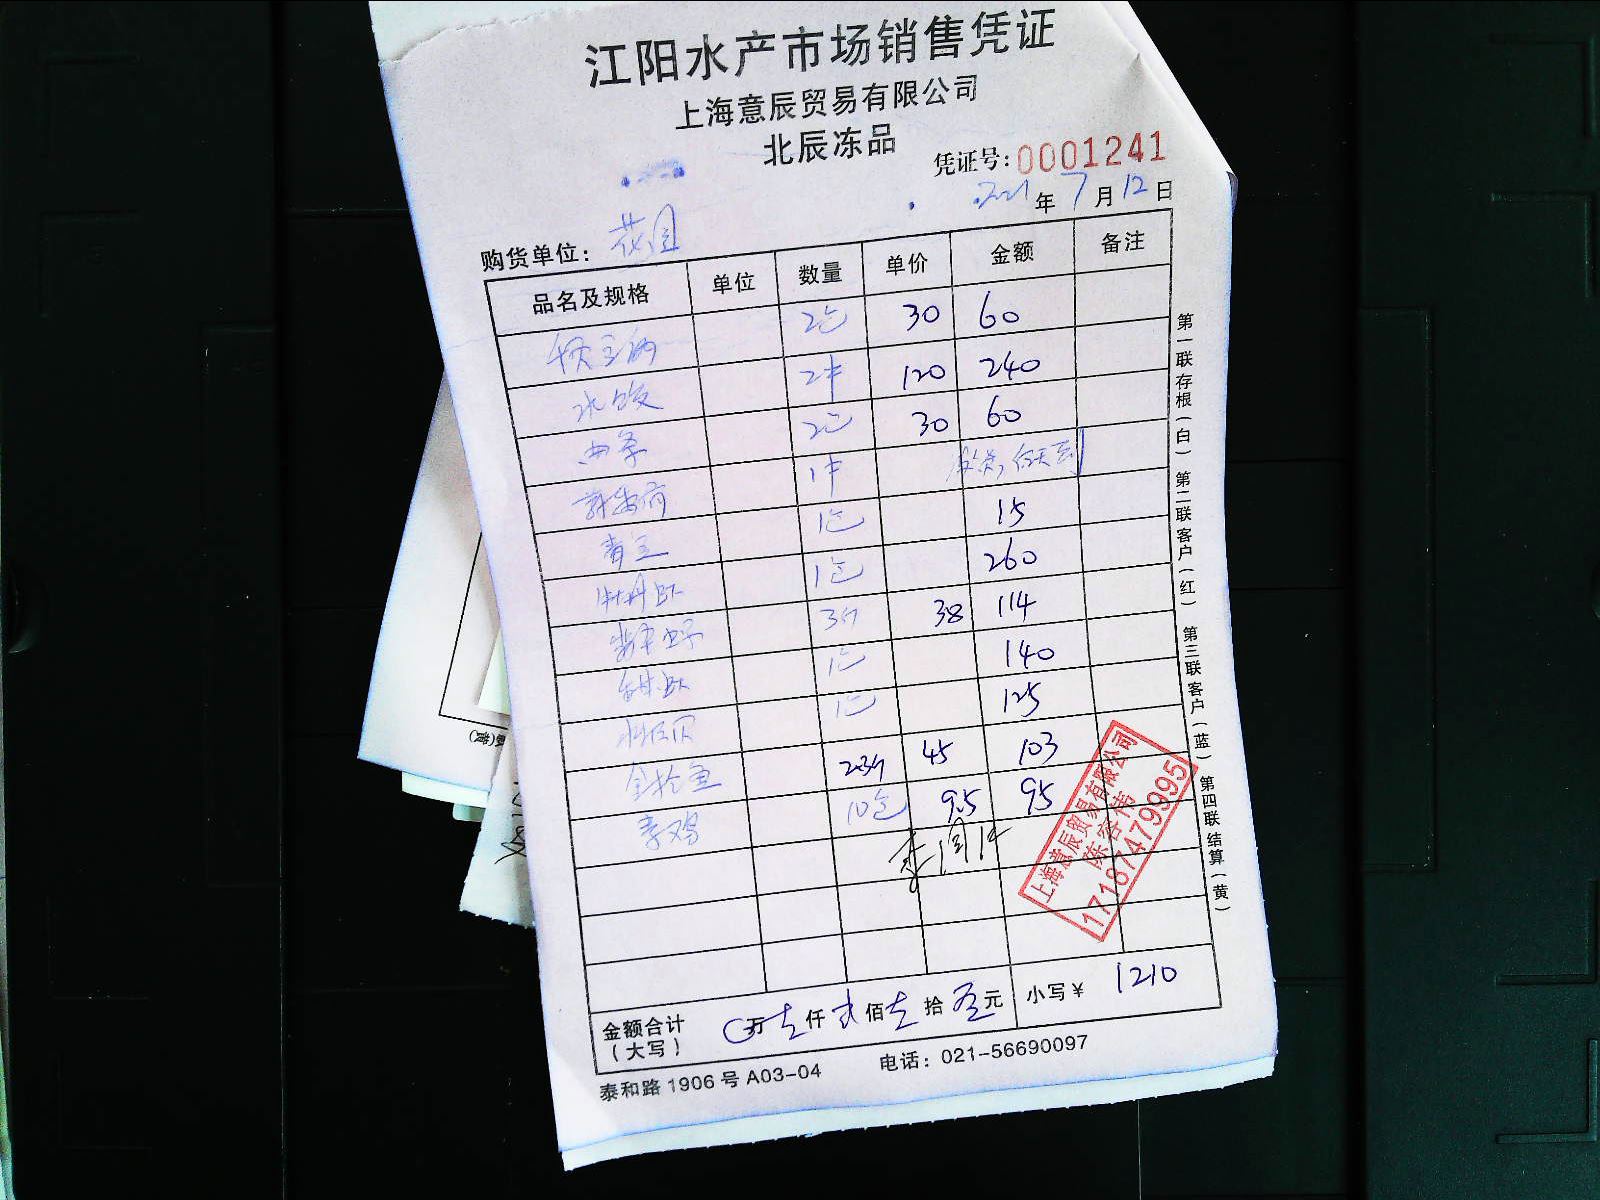 江阳水产市场销售凭证
上海意辰贸易有限公司
北辰冻品
凭证号:0001241
2021年7月12日
购货单位: 花园
品名及规格 单位 数量 单价 金额 备注
2包 30 60
水饺 2件 120 240
西芹 2包 30 60
1件
青豆 1包 15
牡丹虾 1包 260
3斤 38 114
甜虾 1包 140
1包 125
金枪鱼 2.3斤 45 103
10包 9.5 95
金额合计 万 仟 佰 拾 元 小写¥ 1210
(大写)
泰和路1906号A03-04 电话: 021-56690097
第一联存根(白) 第二联客户(红) 第三联客户(蓝) 第四联结算(黄)
上海意辰贸易有限公司
17187479995